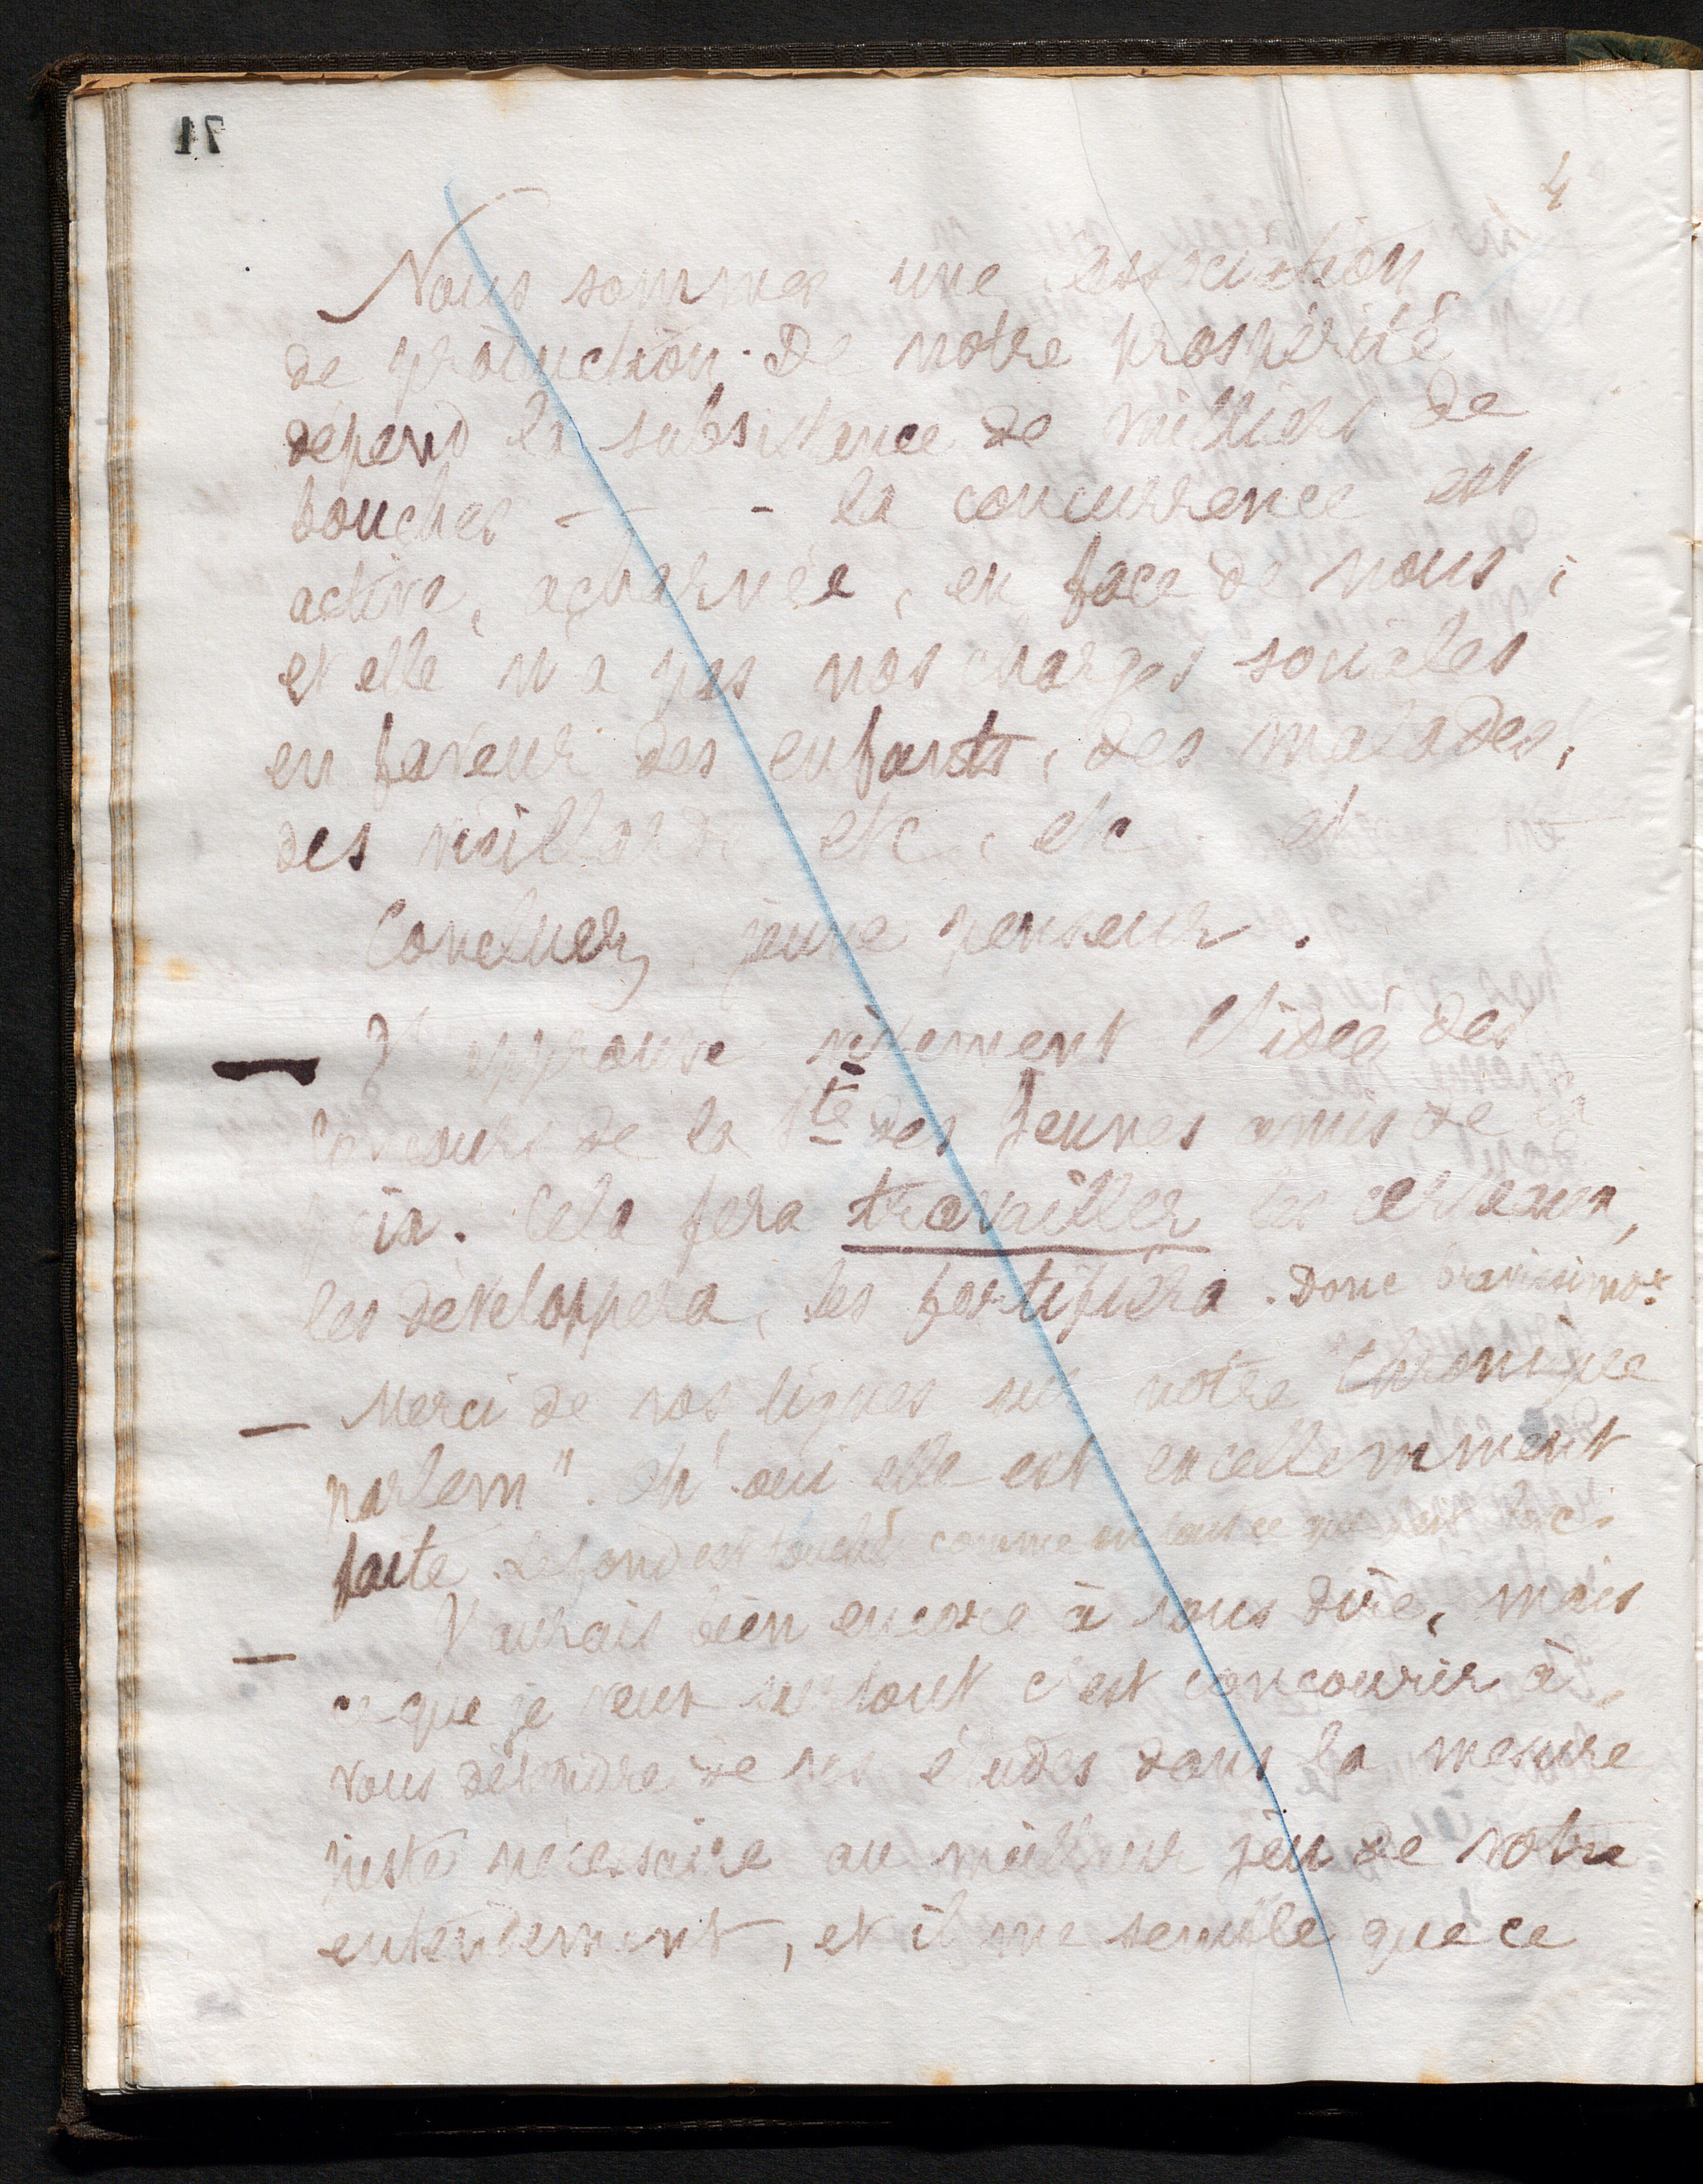 71
4
Nous sommes une association
de production. De notre prospérité
dépend la subsistance de milliers de
bouches - - la concurrence est
active, acharnée, en face de nous ;
et elle n'a pas nos charges sociales
en faveur des enfants, des malades,
des vieillards etc, etc. et
Concluez, jeune penseur.
— J'approuve vivement l'idée des
Concours de la Sté des Jeunes amis de la
paix. Cela fera travailler les cerveaux,
les développera, les fortifiera. Donc bravissimo.
— Merci de vos lignes sur notre "Chronique
parlem". Oh! oui elle est excellemment
faite. Le fond est touché comme en tout ce que
— J'aurais bien encore à vous dire, mais
ce que je veux surtout c'est concourir à
vous détendre de vos études dans la mesure
juste nécessaire au meilleur jeu de votre
entendement, et il me semble que ce